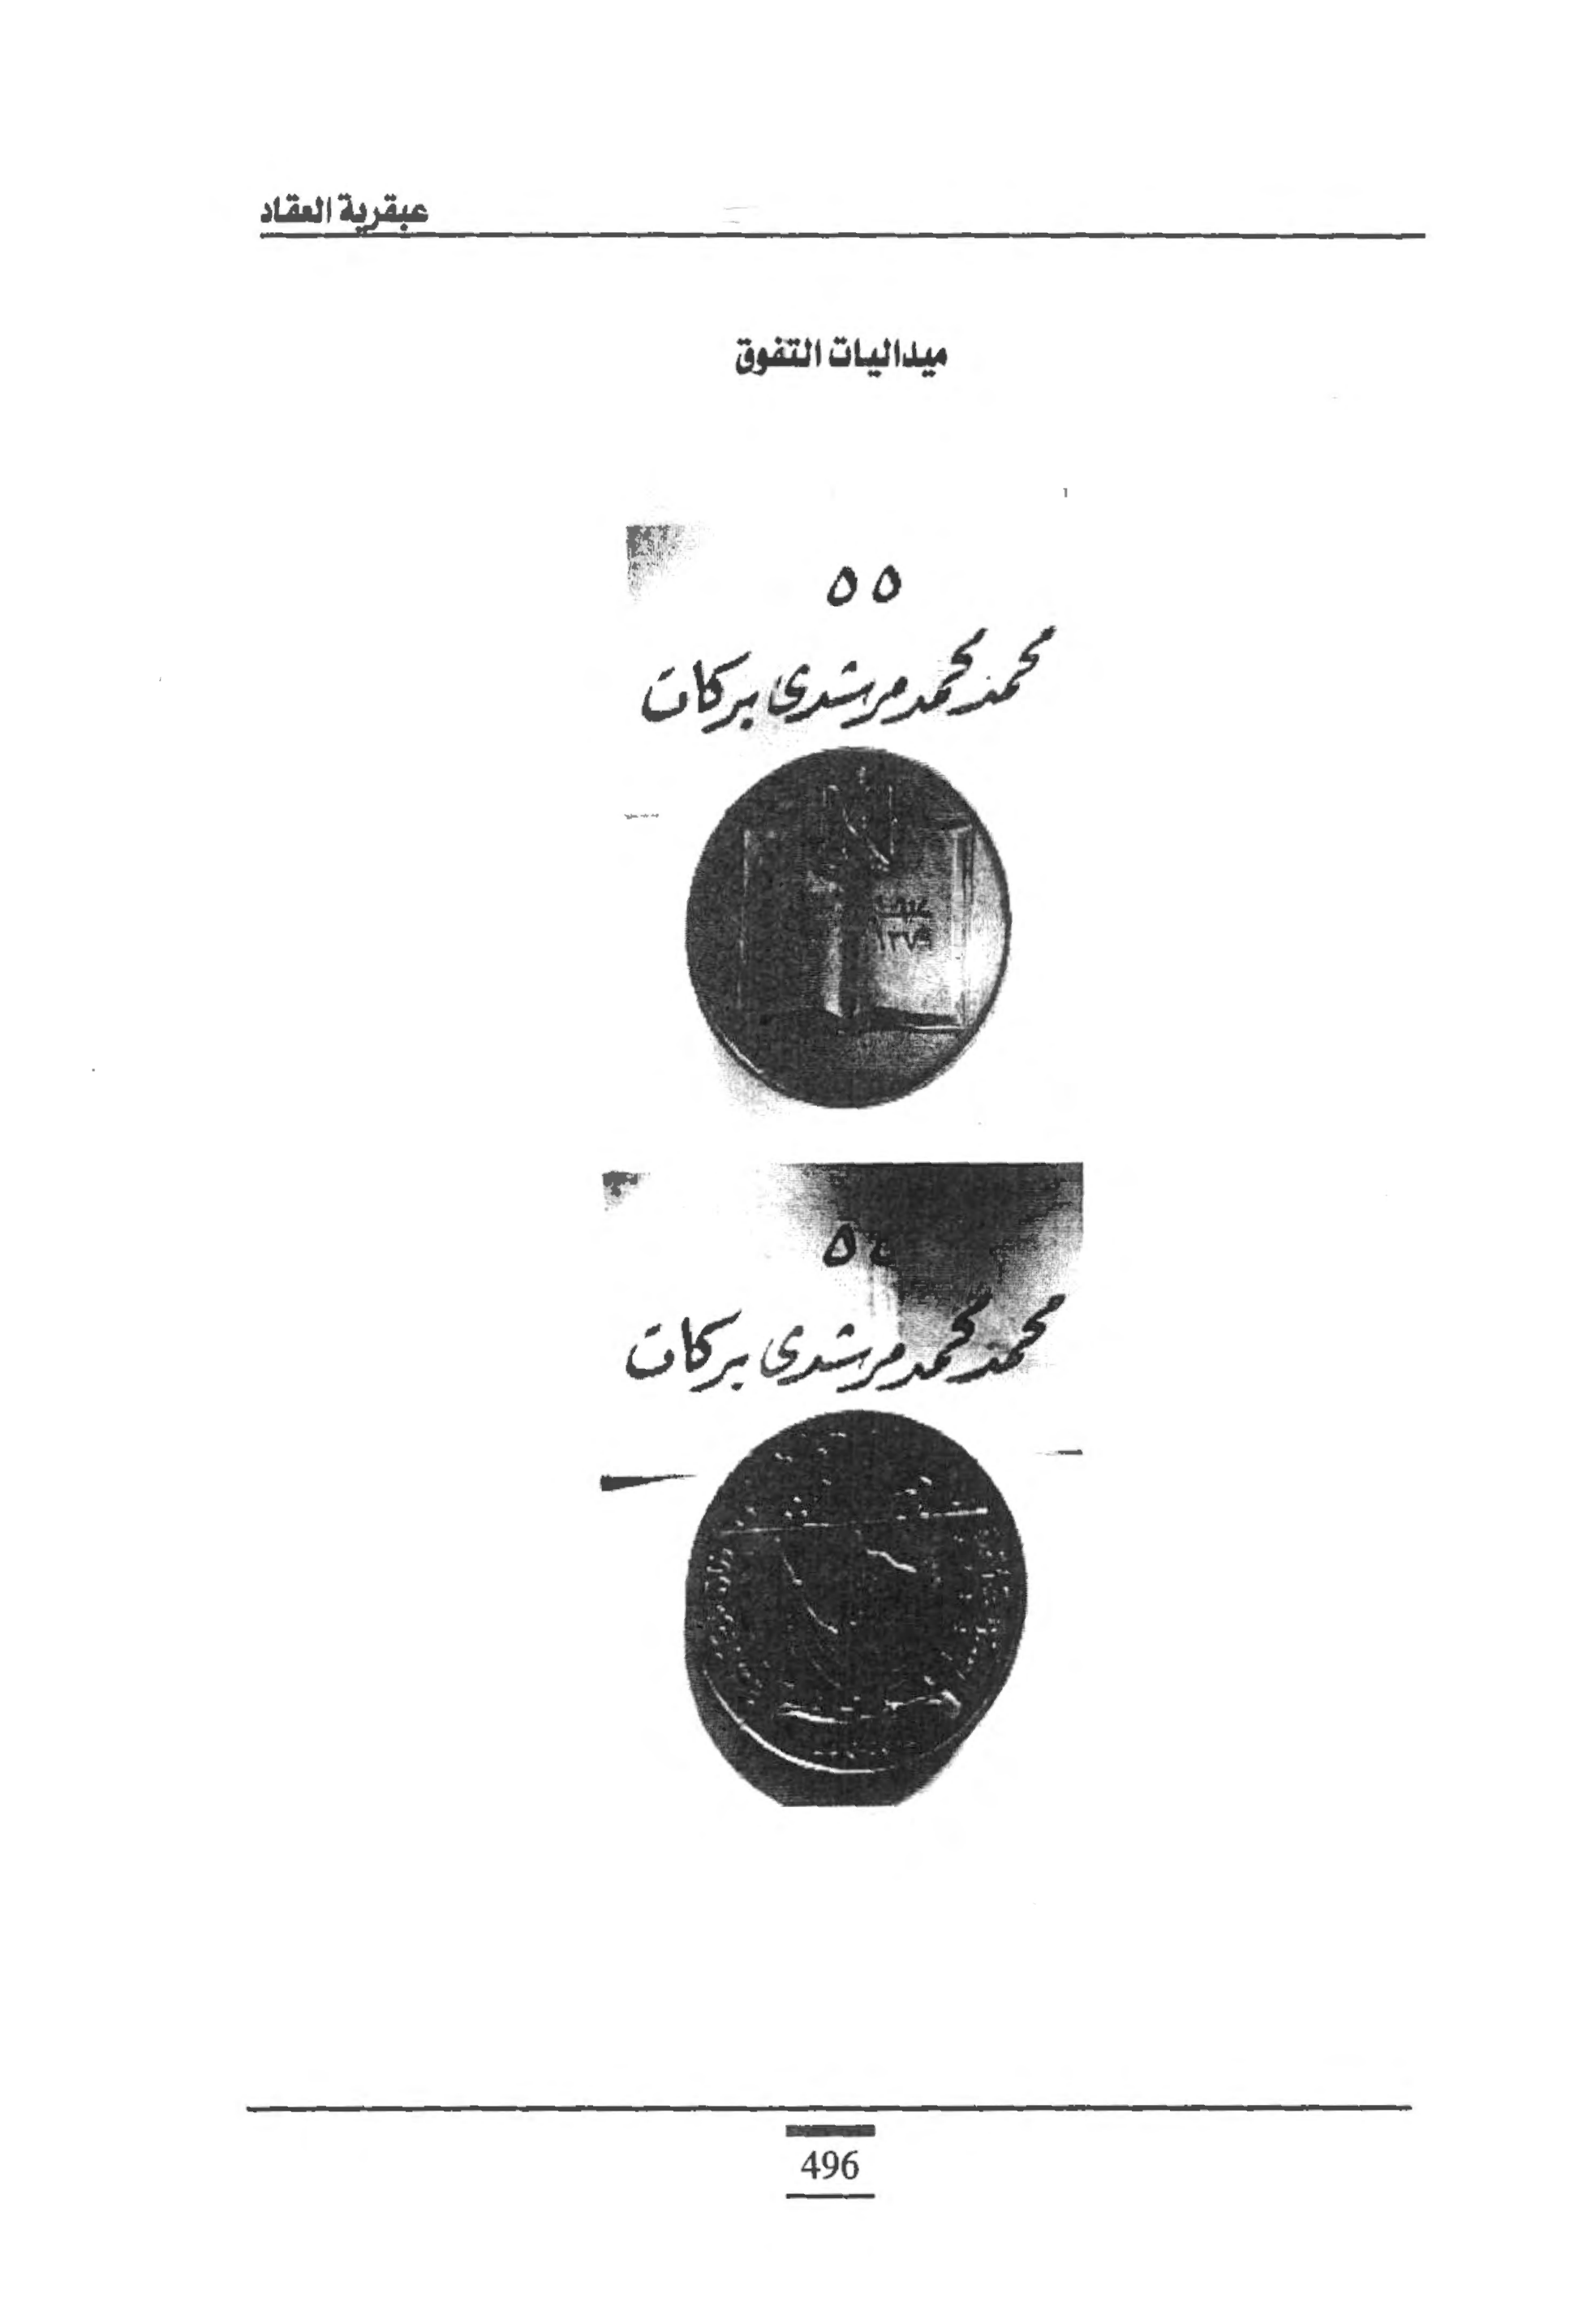 عبقرية العقاد
ميداليات التفوق
٥٥
محمد محمد مرشدى بركات
١٣٧٩
٥٥
محمد محمد مرشدى بركات
496